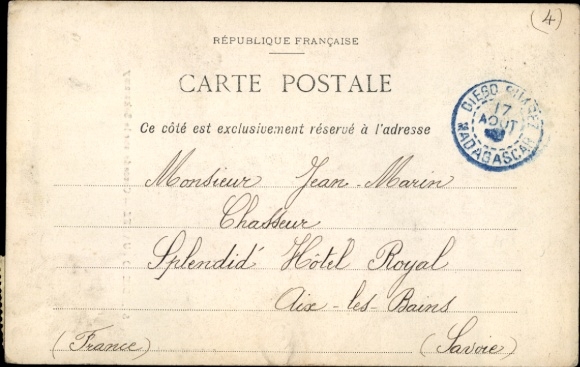 (4)
RÉPUBLIQUE FRANÇAISE
CARTE POSTALE
Ce côté est exclusivement réservé à l'adresse
DIEGO SUAREZ
17
AOUT
MADAGASCAR
Monsieur Jean-Marin
Chasseur
Splendid' Hôtel Royal
Aix-les-Bains
(France) (Savoie)